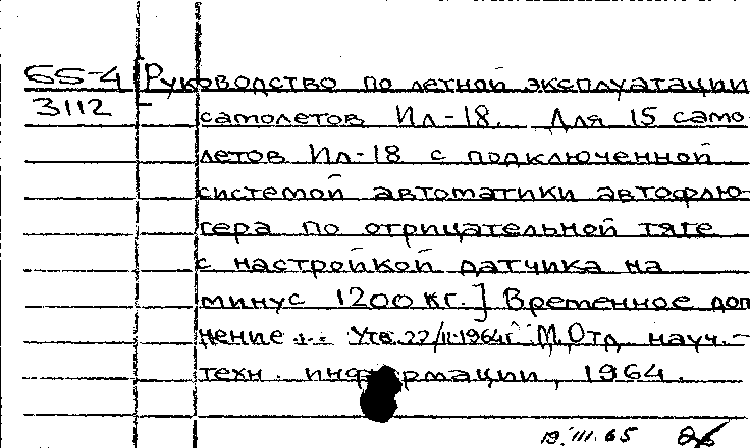 65-4 [Руководство по летной эксплуатации
3112 самолетов Ил-18. Для 15 само-
летов Ил-18 с подключенной
системой автоматики автофлю-
гера по отрицательной тяге
с настройкой датчика на
минус 1200 кг.] Временное доп
нение... Утв. 22/II-1964г М, Отд. науч.-
техн. информации, 1964.
19.III.65